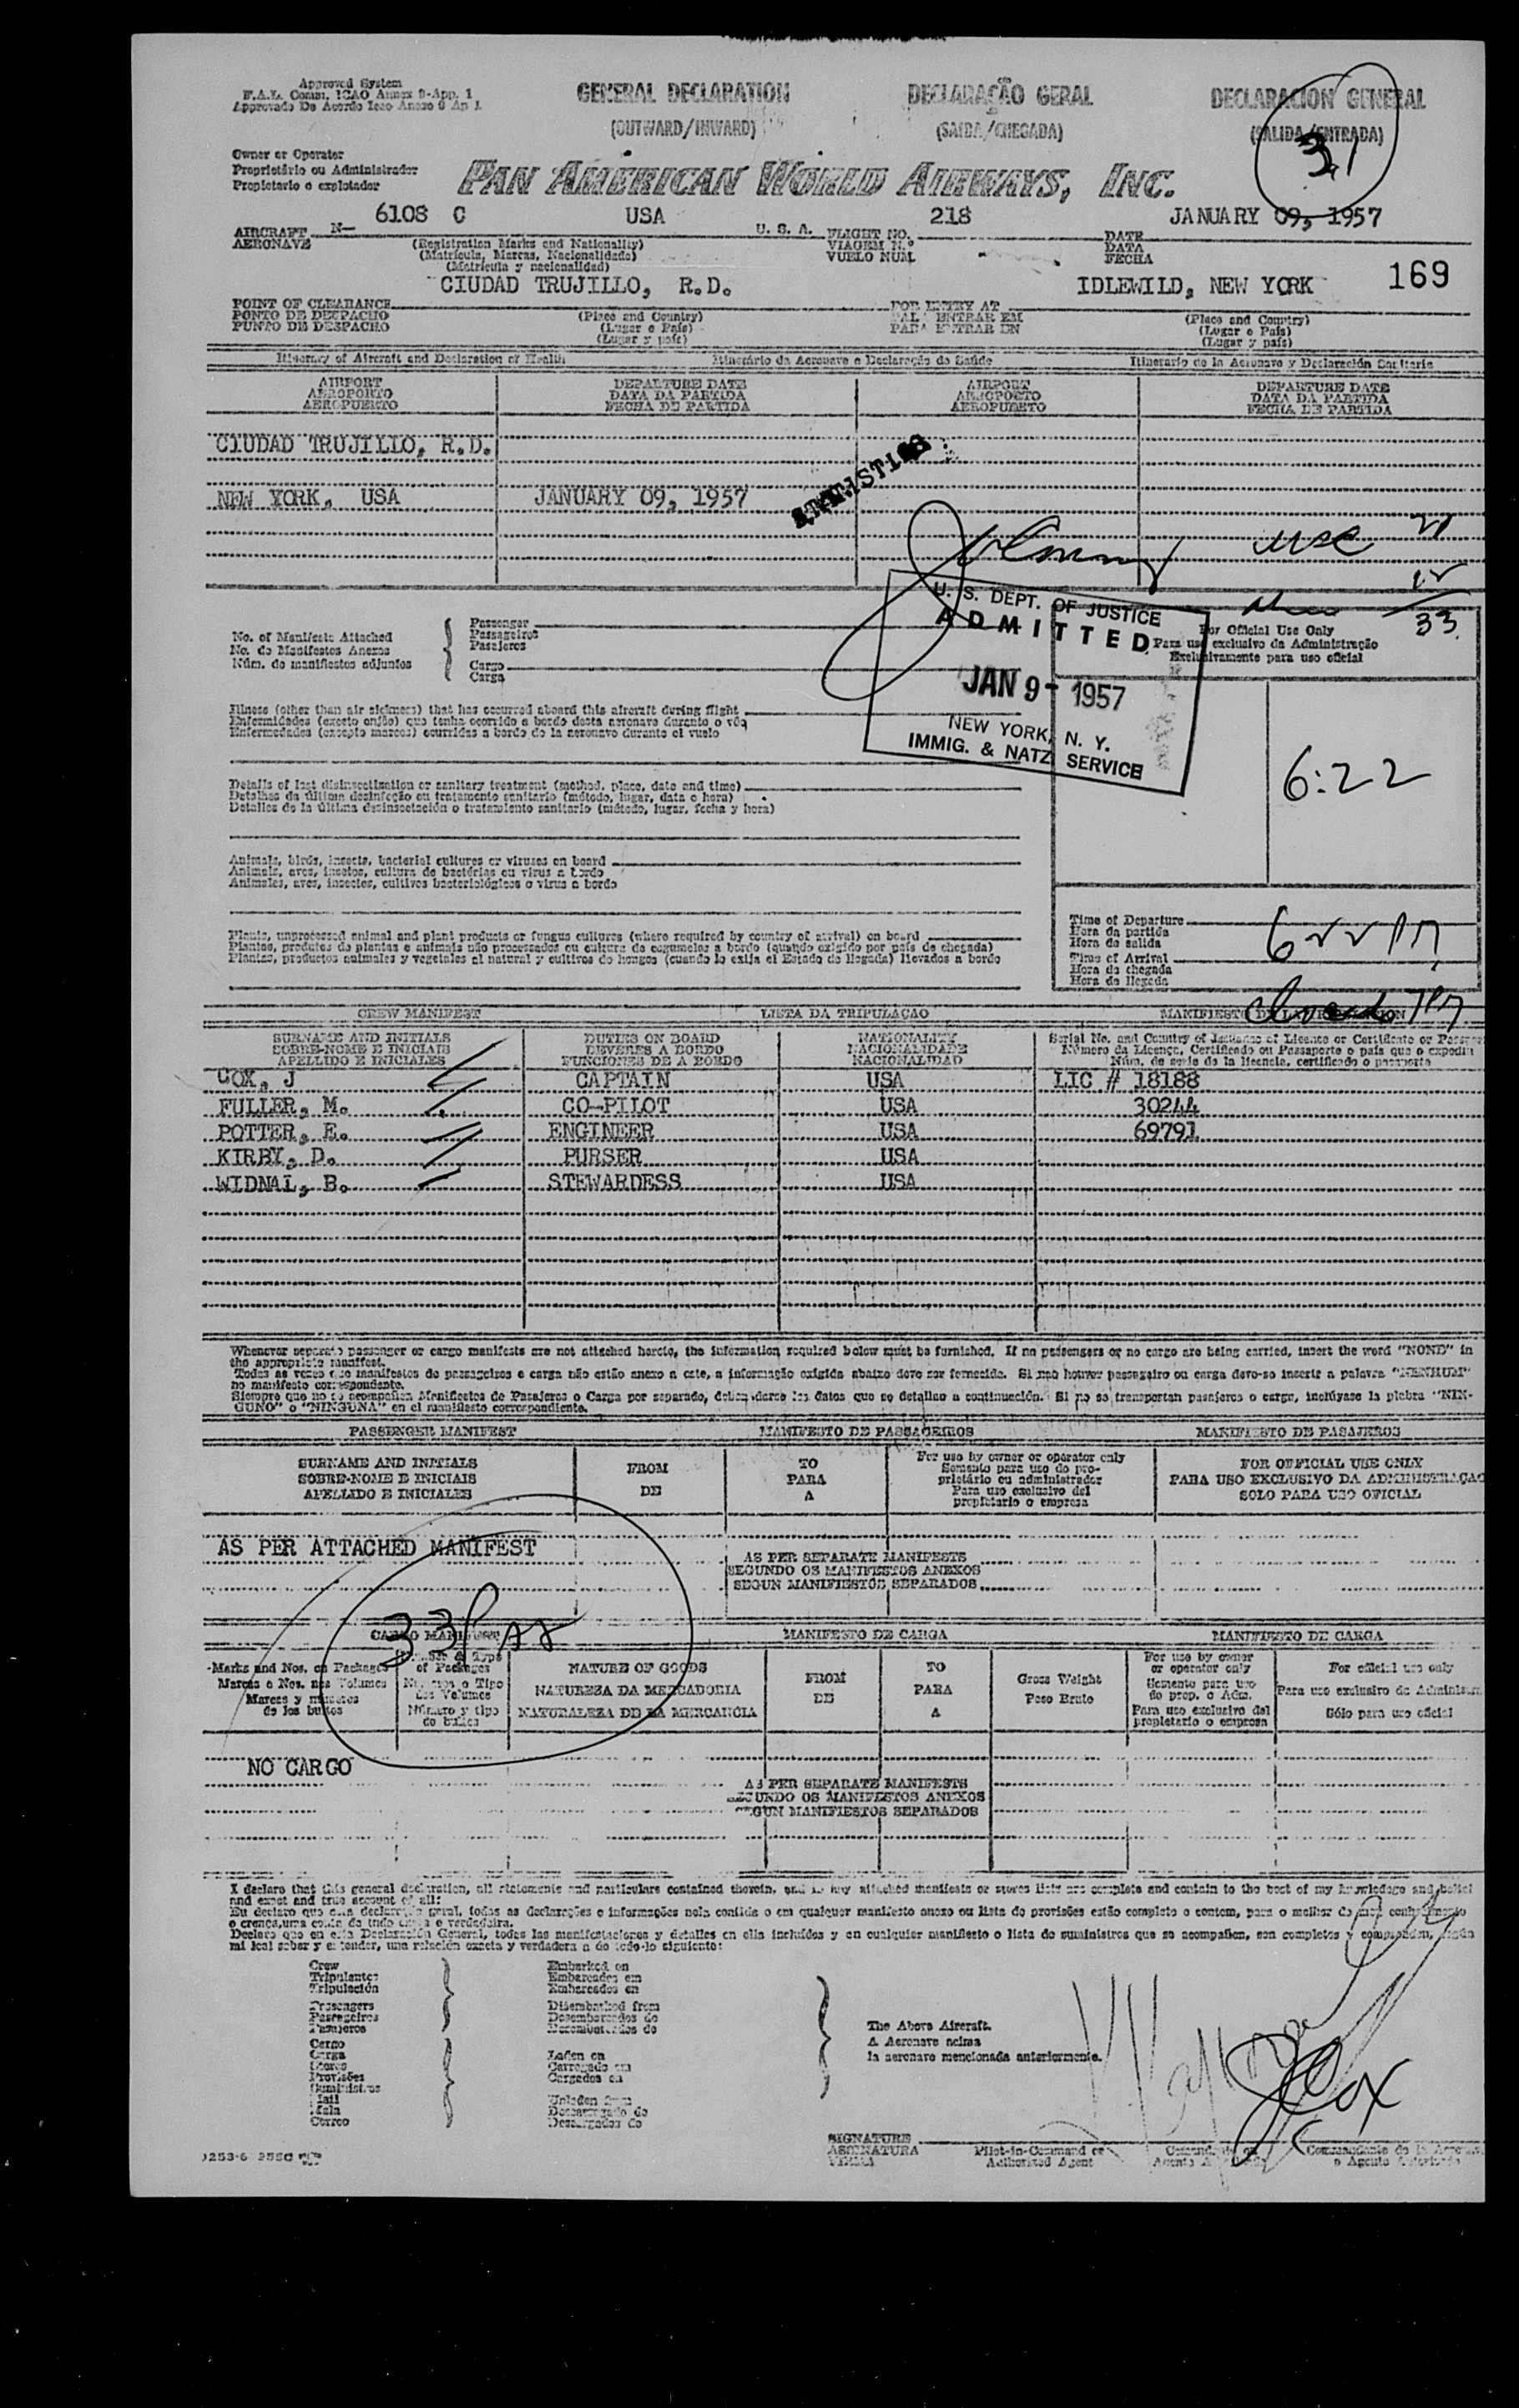 Approved System
F.A.L. Comm. ICAO Annex 9-App. 1
Approvado De Acordo Icao Anexo 9 Ap 1.
GENERAL DECLARATION
(OUTWARD/INWARD)
DECLARAÇÃO GERAL
(SAIDA/CHEGADA)
DECLARACION GENERAL
(SALIDA/ENTRADA)
31
Owner or Operator
Proprietário ou Administrador
Propietario o explotador
PAN AMERICAN WORLD AIRWAYS, INC.
6108 C USA 218 JANUARY 09, 1957
AIRCRAFT N- U. S. A. FLIGHT NO. DATE
AERONAVE (Registration Marks and Nationality) VIAGEM N.º DATA
(Matrícula, Marcas, Nacionalidade) VUELO NUM. FECHA
(Matrícula y nacionalidad)
CIUDAD TRUJILLO, R.D. IDLEWILD, NEW YORK 169
POINT OF CLEARANCE FOR ENTRY AT
PONTO DE DESPACHO (Place and Country) PARA ENTRAR EM (Place and Country)
PUNTO DE DESPACHO (Lugar e País) PARA ENTRAR EN (Lugar e País)
(Lugar y país) (Lugar y país)
Itinerary of Aircraft and Declaration of Health Itinerário da Aeronave e Declaração de Saúde Itinerario de la Aeronave y Declaración Sanitaria
AIRPORT DEPARTURE DATE AIRPORT DEPARTURE DATE
AEROPORTO DATA DA PARTIDA AEROPORTO DATA DA PARTIDA
AEROPUERTO FECHA DE PARTIDA AEROPUERTO FECHA DE PARTIDA
CIUDAD TRUJILLO, R.D.
NEW YORK, USA JANUARY 09, 1957
STATISTICS
USC 21
12
33
U. S. DEPT. OF JUSTICE
ADMITTED
JAN 9 - 1957
NEW YORK, N. Y.
IMMIG. & NATZ SERVICE
No. of Manifests Attached
No. de Manifestos Anexos
Núm. de manifiestos adjuntos
Passenger
Passageiros
Pasajeros
Cargo
Carga
For Official Use Only
Para uso exclusivo da Administração
Exclusivamente para uso oficial
Illness (other than air sickness) that has occurred aboard this aircraft during flight
Enfermidades (exceto enjôo) que tenha ocorrido a bordo desta aeronave durante o vôo
Enfermedades (excepto mareos) ocurridas a bordo de la aeronave durante el vuelo
6:22
Details of last disinsectization or sanitary treatment (method, place, date and time)
Detalhes da última desinfeção ou tratamento sanitario (método, lugar, data e hora)
Detalles de la última desinsectación o tratamiento sanitario (método, lugar, fecha y hora)
Animals, birds, insects, bacterial cultures or viruses on board
Animais, aves, insetos, cultura de bactérias ou virus a bordo
Animales, aves, insectos, cultivos bacteriológicos o virus a bordo
Plants, unprocessed animal and plant products or fungus cultures (where required by country of arrival) on board
Plantas, produtos de plantas e animais não processados ou cultura de cogumelos a bordo (quando exigido por país de chegada)
Plantas, productos animales y vegetales al natural y cultivos de hongos (cuando lo exija el Estado de llegada) llevados a bordo
Time of Departure
Hora da partida
Hora de salida
622 PM
Time of Arrival
Hora da chegada
Hora de llegada
7PM
CREW MANIFEST LISTA DA TRIPULAÇAO MANIFIESTO DE LA TRIPULACION
SURNAME AND INITIALS DUTIES ON BOARD NATIONALITY Serial No. and Country of Issuance of License or Certificate or Passport
SOBRE-NOME E INICIAIS DEVERES A BORDO NACIONALIDADE Número da Licença, Certificado ou Passaporte e país que o expediu
APELLIDO E INICIALES FUNCIONES DE A BORDO NACIONALIDAD Núm. de serie de la licencia, certificado o pasaporte
COX, J CAPTAIN USA LIC # 18188
FULLER, M. CO-PILOT USA 30244
POTTER, E. ENGINEER USA 69791
KIRBY, D. PURSER USA
WIDNAL, B. STEWARDESS USA
Whenever separate passenger or cargo manifests are not attached hereto, the information required below must be furnished. If no passengers or no cargo are being carried, insert the word "NONE" in
the appropriate manifest.
Todas as vezes que manifestos de passageiros e carga não estão anexo a este, a informação exigida abaixo deve ser fornecida. Si não houver passageiro ou carga deve-se inserir a palavra "NENHUM"
no manifesto correspondente.
Siempre que no se acompañen Manifiestos de Pasajeros o Carga por separado, deben darse los datos que se detallan a continuación. Si no se transportan pasajeros o carga, inclúyase la plebra "NIN-
GUNO" o "NINGUNA" en el manifiesto correspondiente.
PASSENGER MANIFEST MANIFESTO DE PASSAGEIROS MANIFIESTO DE PASAJEROS
SURNAME AND INITIALS FROM TO For use by owner or operator only FOR OFFICIAL USE ONLY
SOBRE-NOME E INICIAIS DE PARA Somente para uso do pro- PARA USO EXCLUSIVO DA ADMINISTRAÇAO
APELLIDO E INICIALES A prietário ou administrador SOLO PARA USO OFICIAL
Para uso exclusivo del
propietario o empresa
AS PER ATTACHED MANIFEST
AS PER SEPARATE MANIFESTS
SEGUNDO OS MANIFESTOS ANEXOS
SEGUN MANIFIESTOS SEPARADOS
33
CARGO MANIFEST MANIFESTO DE CARGA MANIFIESTO DE CARGA
Marks and Nos. on Packages
Marcas e Nos. nos Volumes
Marcas y números
de los bultos
of Packages
Número y tipo
de bultos
NATURE OF GOODS
NATUREZA DA MERCADORIA
NATURALEZA DE LA MERCANCIA
FROM
DE
TO
PARA
A
Gross Weight
Peso Bruto
For use by owner
or operator only
Somente para uso
do prop. o Adm.
Para uso exclusivo del
propietario o empresa
For official use only
Para uso exclusivo de Administra
Sólo para uso oficial
NO CARGO
AS PER SEPARATE MANIFESTS
SEGUNDO OS MANIFESTOS ANEXOS
SEGUN MANIFIESTOS SEPARADOS
I declare that this general declaration, all statements and particulars contained therein, and in any attached manifests or stores lists are complete and contain to the best of my knowledge and belief
and exact and true account of all:
Eu declaro que esta declaração geral, todas as declarações e informações nela contida o em qualquer manifesto anexo ou lista de provisões estão completo e contem, para o melhor do meu conhecimento
e crença, uma conta de tudo exata e verdadeira.
Declaro que en esta Declaración General, todas las manifestaciones y detalles en ella incluídos y en cualquier manifiesto o lista de suministros que se acompañen, son completos y comprenden,
mi leal saber y entender, una relación exacta y verdadera a de todo-lo siguiente:
Crew
Tripulantes
Tripulación
Passengers
Passageiros
Pasajeros
Cargo
Carga
Stores
Provisões
Suministros
Mail
Mala
Correo
Embarked on
Embarcados em
Embarcados en
Disembarked from
Desembarcados de
Desembarcados de
Laden on
Carregado em
Cargados en
Unladen from
Descarregado de
Descargados de
The Above Aircraft.
A Aeronave acima
la aeronave mencionada anteriormente.
J Cox
SIGNATURE
ASSINATURA
FIRMA
Pilot-in-Command or
Authorized Agent